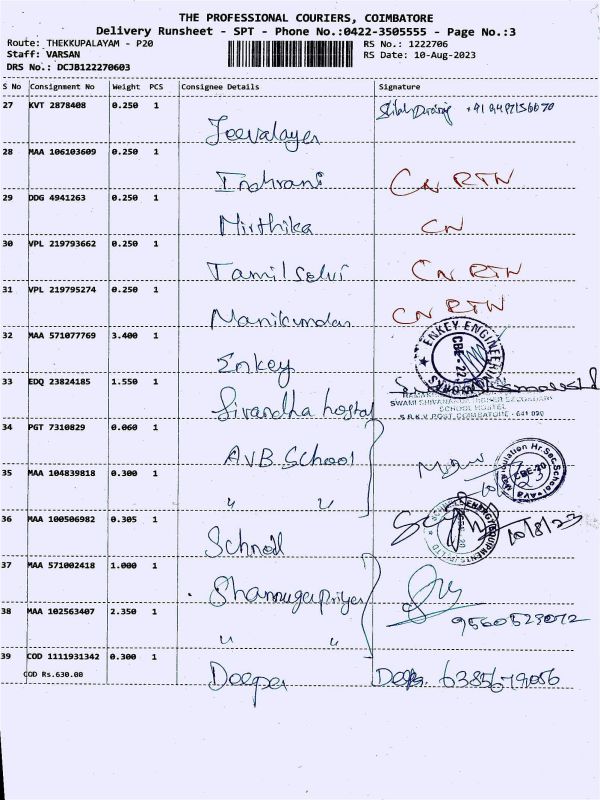 THE PROFESSIONAL COURIERS, COIMBATORE
Delivery Runsheet - SPT - Phone No.:0422-3505555 - Page No.:3
Route: THEKKUPALAYAM - P20
RS No.: 1222706
Staff: VARSAN
RS Date: 10-Aug-2023
DRS No.: DCJB122270603
S No Consignment No Weight PCS Consignee Details Signature
27 KVT 2878408 0.250 1
Jeevalayer
28 MAA 106103609 0.250 1
Indhrani CN RTN
29 DDG 4941263 0.250 1
Mirthika CN
30 VPL 219793662 0.250 1
Tamilselvi CN RTN
31 VPL 219795274 0.250 1
Manikundan CN RTN
32 MAA 571077769 3.400 1
Enkey
ENKEY ENGINEERING WORKS
CBE-22
33 EDQ 23824185 1.550 1
Sivandha hostal
SCHOOL HOSTEL
S.R.K.V. POST, COIMBATORE - 641 020
34 PGT 7310829 0.060 1
AVB School
35 MAA 104839818 0.300 1
" "
CBE-20
36 MAA 100506982 0.305 1
Schnell 10/8/23
37 MAA 571002418 1.000 1
Shanmugapriya
38 MAA 102563407 2.350 1
" " 9560523072
39 COD 1111931342 0.300 1
COD Rs.630.00
Deepa Deepa. 6385679056